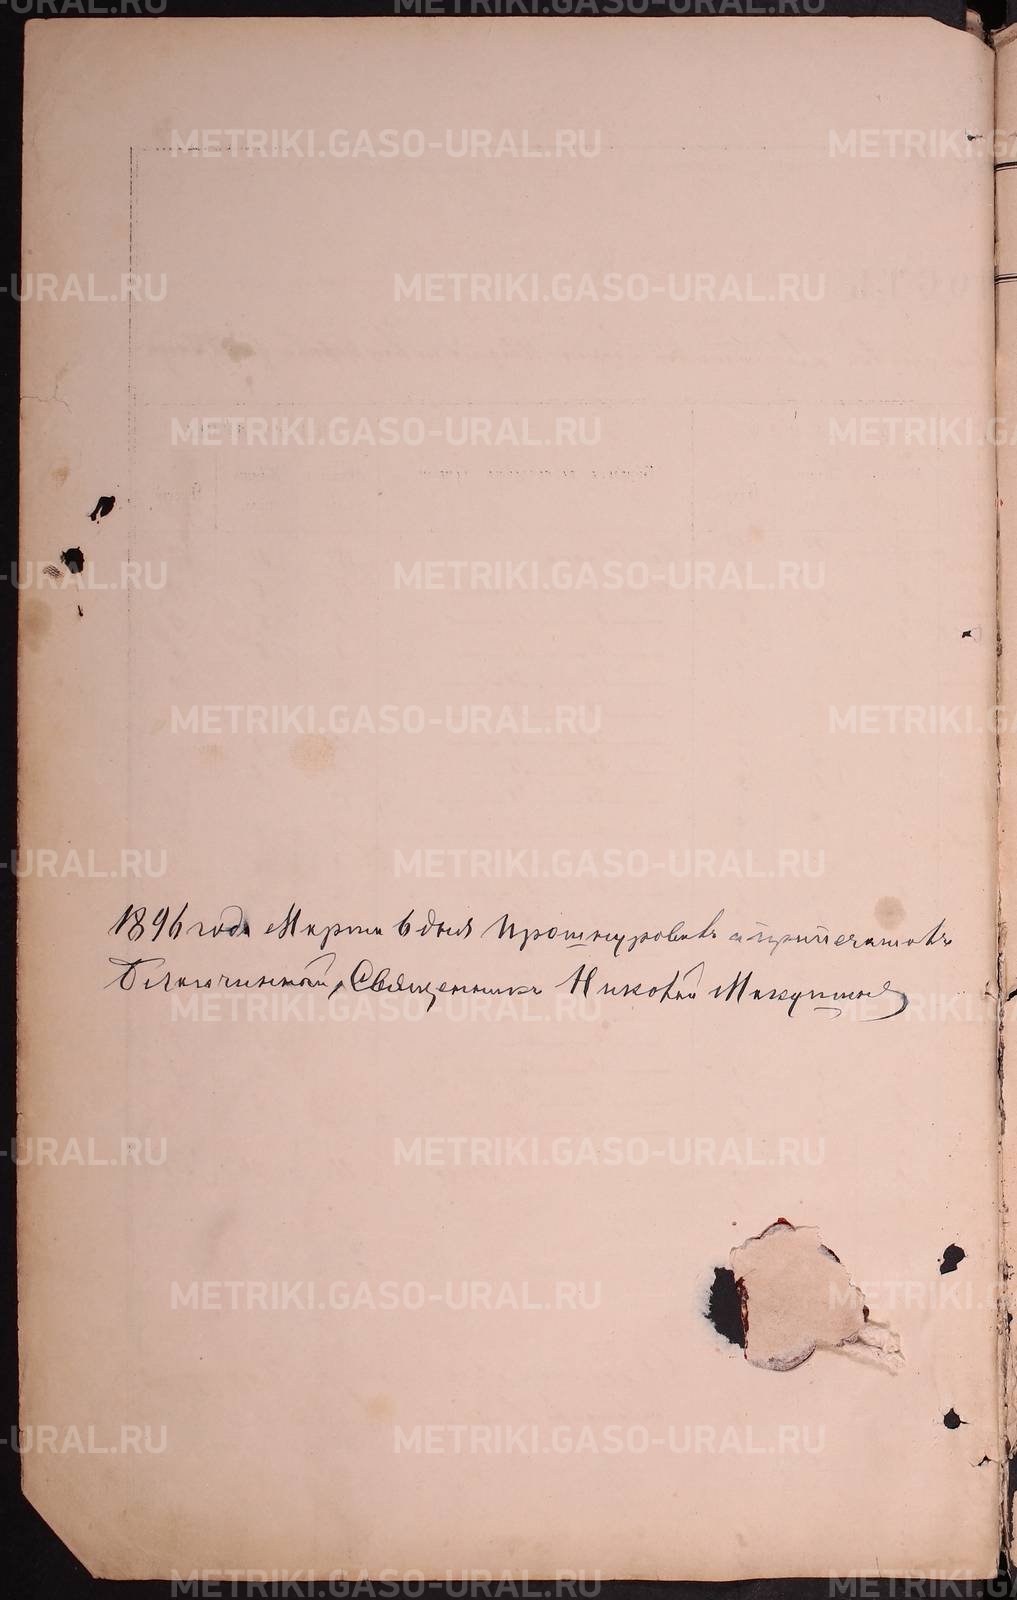 METRIKI.GASO-URAL.RU
1896 года Марта 6 дня прошнуровалъ и припечаталъ
Благочинный, Священникъ Николай